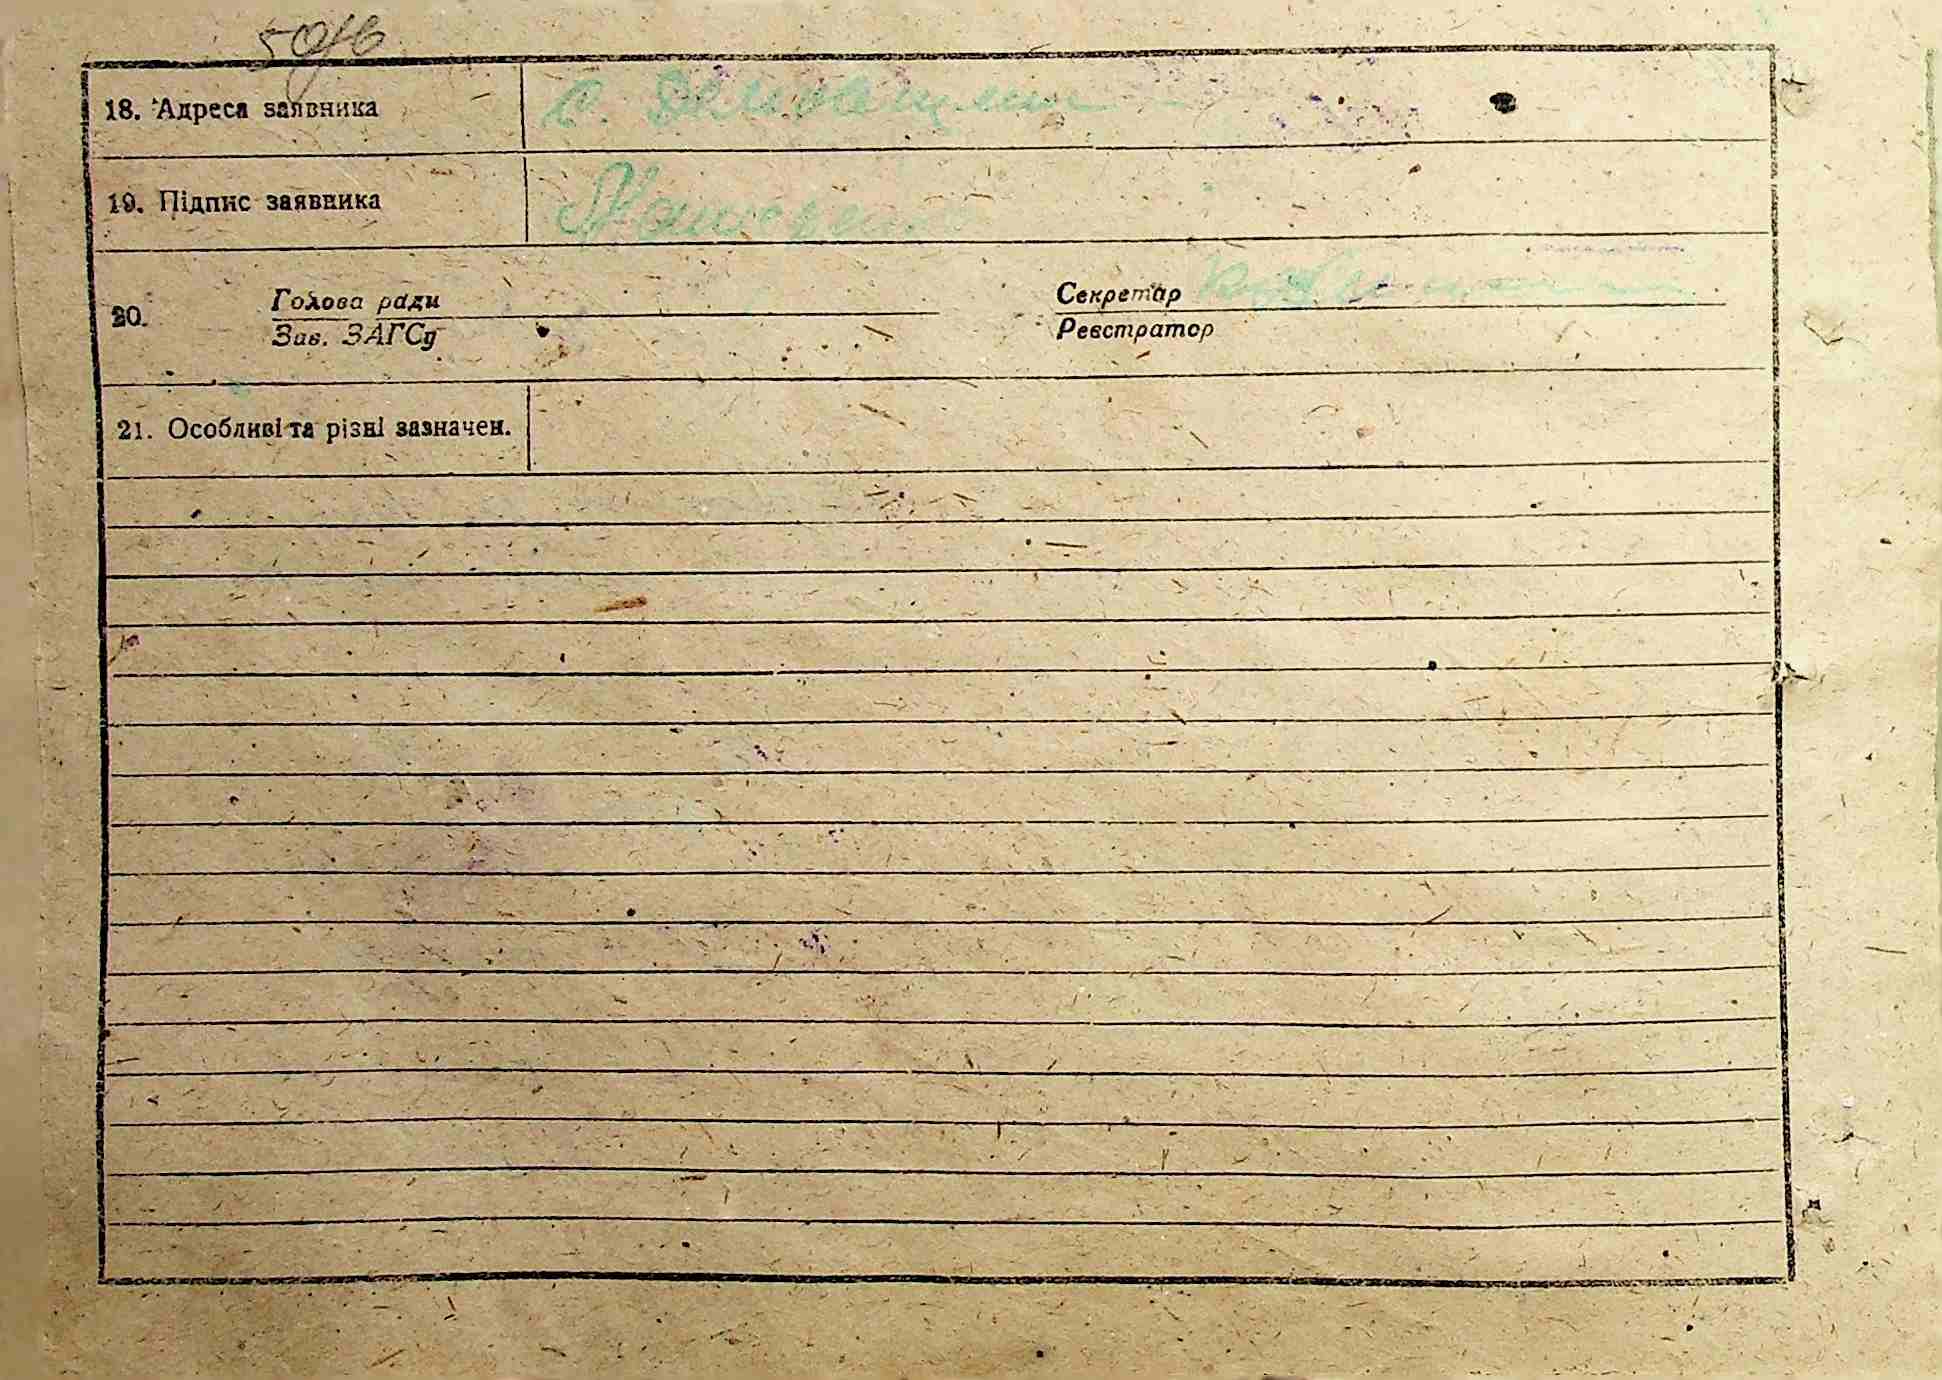 18. Адреса заявника с.
19. Підпис заявника
20. Голова ради Секретар
Зав. ЗАГСу Реєстратор
21. Особливі та різні зазначен.